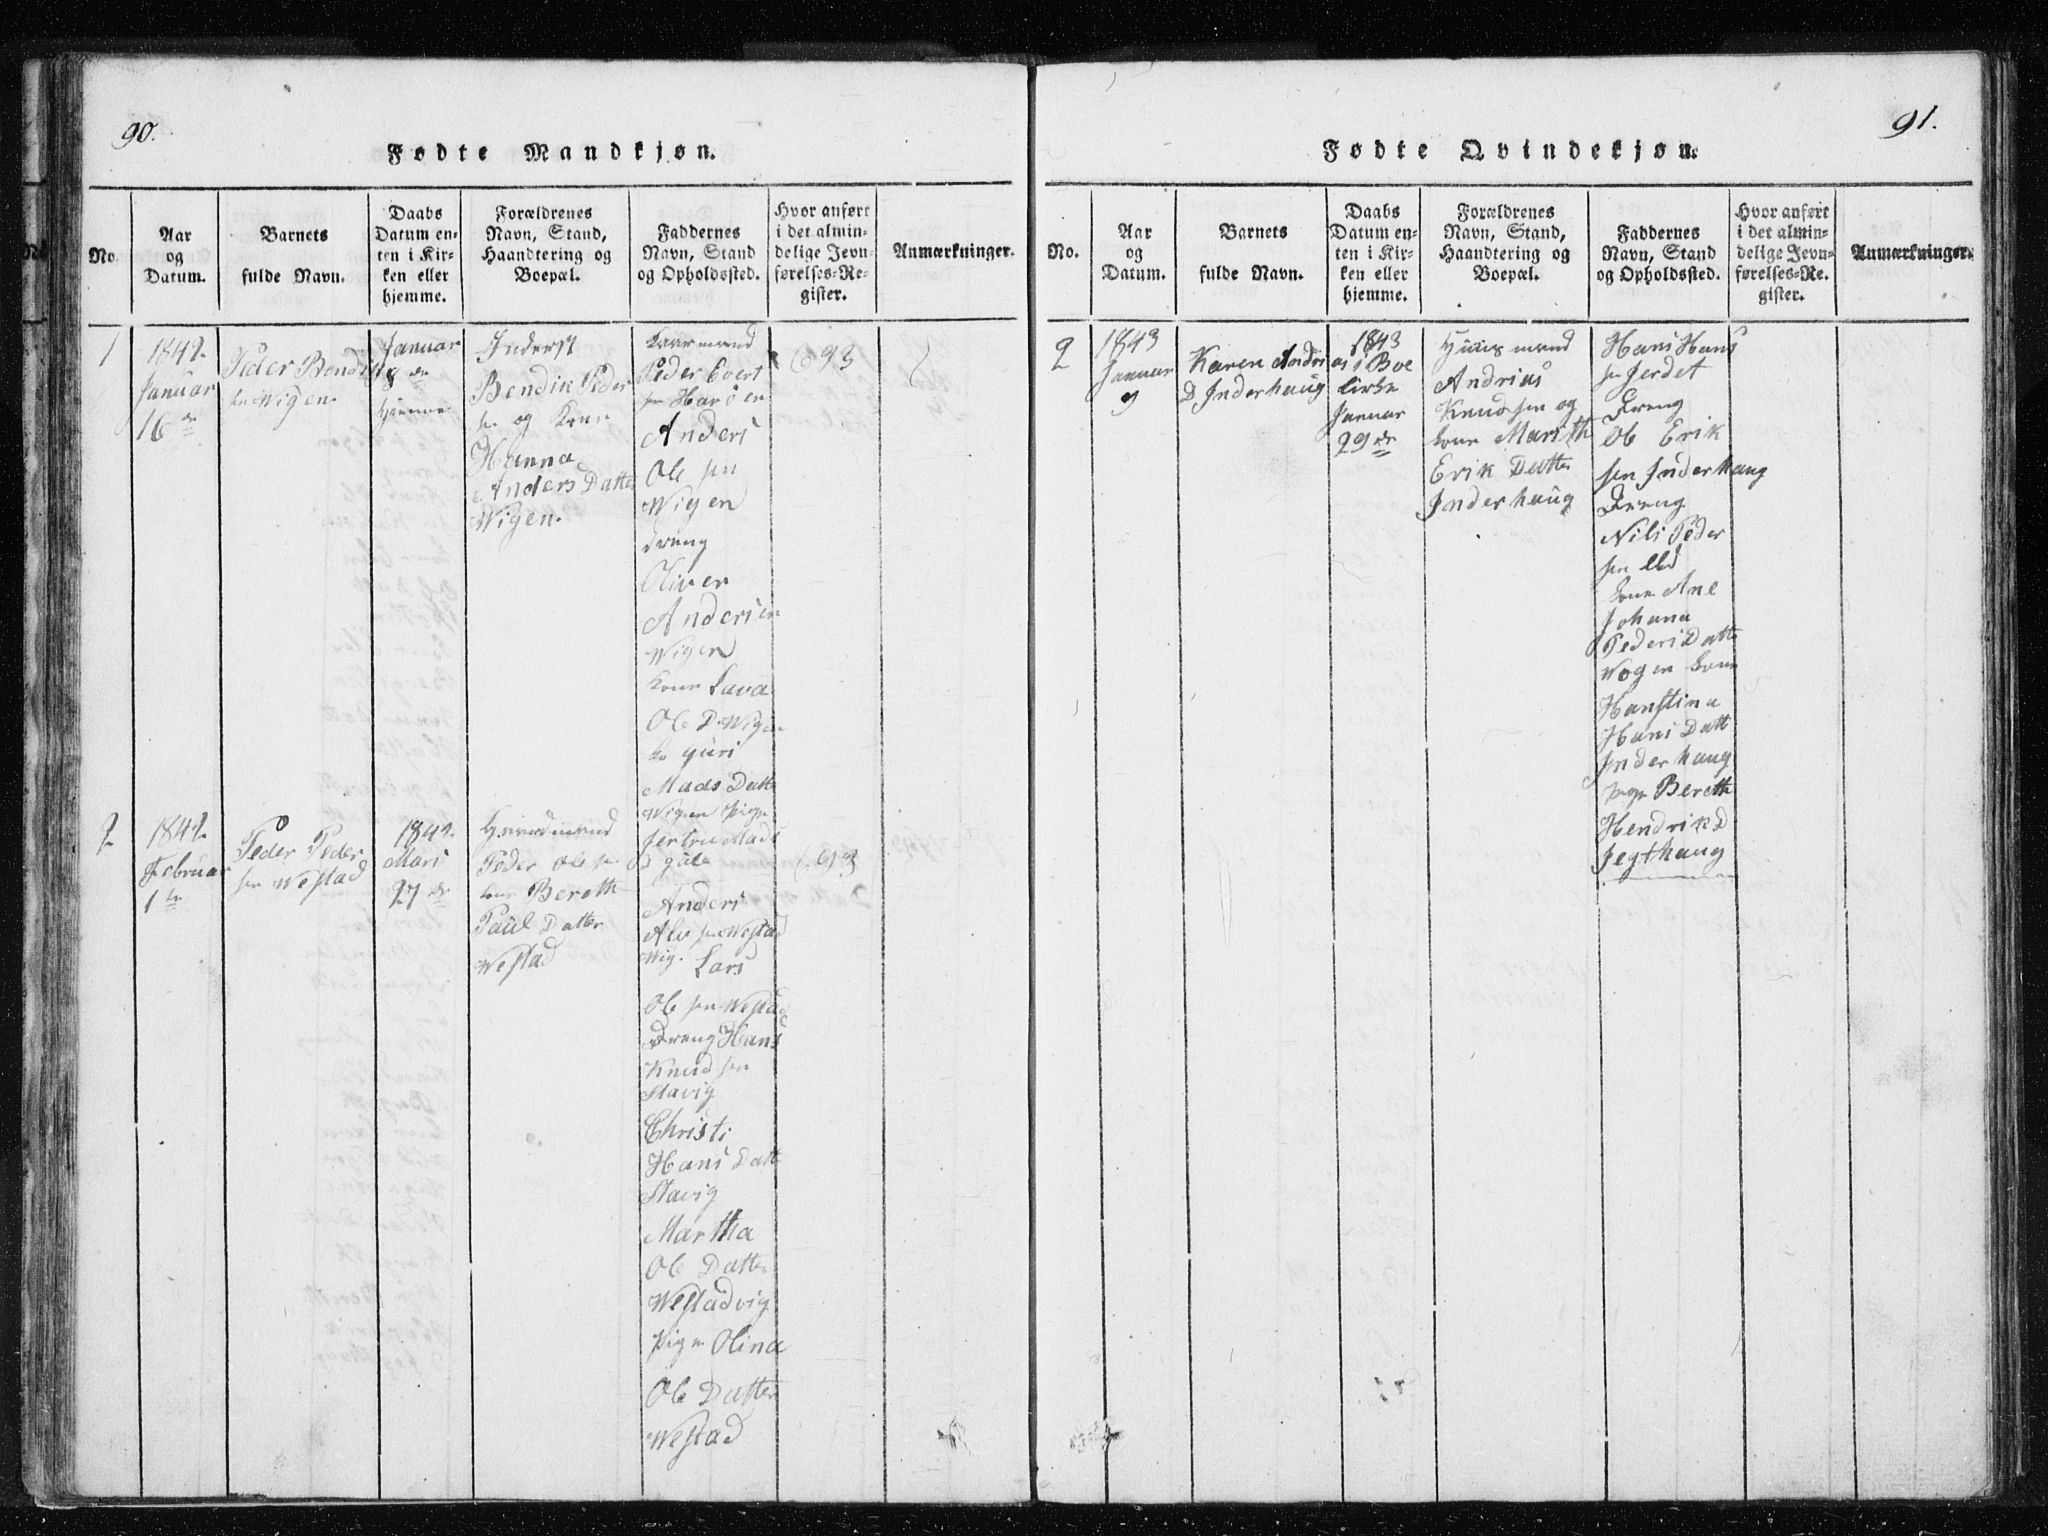 90.
Fødte Mandkjøn.
No.
Aar
og
Datum.
Barnets
fulde Navn.
Daabs
Datum en-
ten i Kir-
ken eller
hjemme.
Forældrenes
Navn, Stand,
Haandtering og
Boepæl.
Faddernes
Navn, Stand
og Opholdssted.
Hvor anført
i det almin-
delige Jevn-
førelses-Re-
gister.
Anmærkninger.
1
1842
Januar
16 de
Peder Bendik
sen Wigen
Januar
de
Hjemme
Inderst
Bendik Peder
sen og Kone
Hanna
Anders Datter
Wigen.
Peder Evert
sen Harøen
Anders
Ole sen
Wigen
dreng
Oliver
Andersen
Wigen
Kone Lava
Ole D. Wigen
ko guri
Mads Datter
Wigen pige
Jertru Mads
D
693
2
1842
Februar
1 te
Peder Peder
sen Westad
1842
Mars
27 de
Gaardmand
Peder Ole sen
kone Bereth
Paul Datter
Westad
Anders
Ale sen Westad
Wig. Lars
Ole sen Westad
Dreng Hans
Knud sen
Stavig
Christi
Hans Datt
Stavig
Martha
Ole Datter
Westadvig
Pige Olina
Ole Datter
Westad
693
91.
Fødte Qvindekjøn.
No.
Aar
og
Datum.
Barnets
fulde Navn.
Daabs
Datum en-
ten i Kir-
ken eller
hjemme.
Forældrenes
Navn, Stand,
Haandtering og
Boepæl.
Faddernes
Navn, Stand
og Opholdssted.
Hvor anført
i det almin-
delige Jevn-
førelses-Re-
gister.
Anmærkninger.
2
1843
Januar
9
Karen Andrias
D Inderhaug
1843
i Boe
kirke
Januar
29 de
Huusmand
Andrias
Knudsen og
kone Marith
Erik Datter
Inderhaug
Hans Hans
sen Jerdet
Dreng
Ole Erik
sen Inderhaug
Dreng
Nils Peder
sen
kone Ane
Johana
Peders Datter
Wogen kone
Hanstina
Hans Datt
Inderhaug
pige Bereth
Hendrik D
Jegthaug